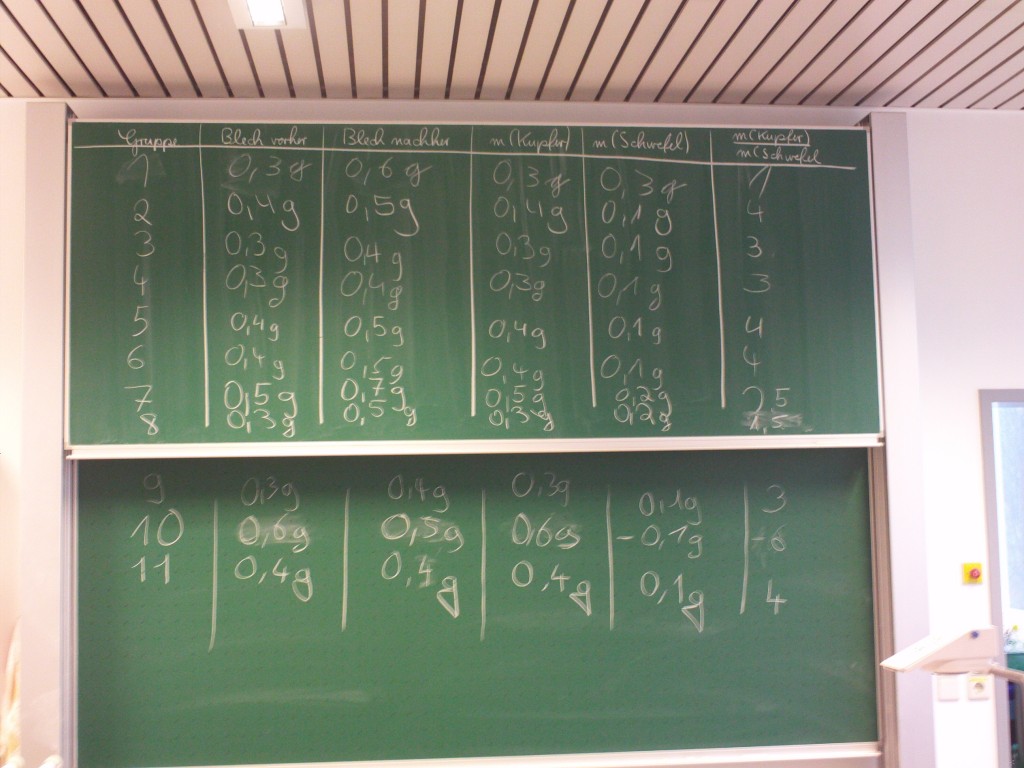 Gruppe Blech vorher Blech nachher m(Kupfer) m(Schwefel) m(Kupfer)
m(Schwefel
1 0,3g 0,6g 0,3g 0,3g 1
2 0,4g 0,5g 0,4g 0,1g 4
3 0,3g 0,4g 0,3g 0,1g 3
4 0,3g 0,4g 0,3g 0,1g 3
5 0,4g 0,5g 0,4g 0,1g 4
6 0,4g 0,5g 0,4g 0,1g 4
7 0,5g 0,7g 0,5g 0,2g 2,5
8 0,3g 0,5g 0,3g 0,2g
9 0,3g 0,4g 0,3g 0,1g 3
10 0,6g 0,5g 0,6g -0,1g -6
11 0,4g 0,4g 0,1g 4